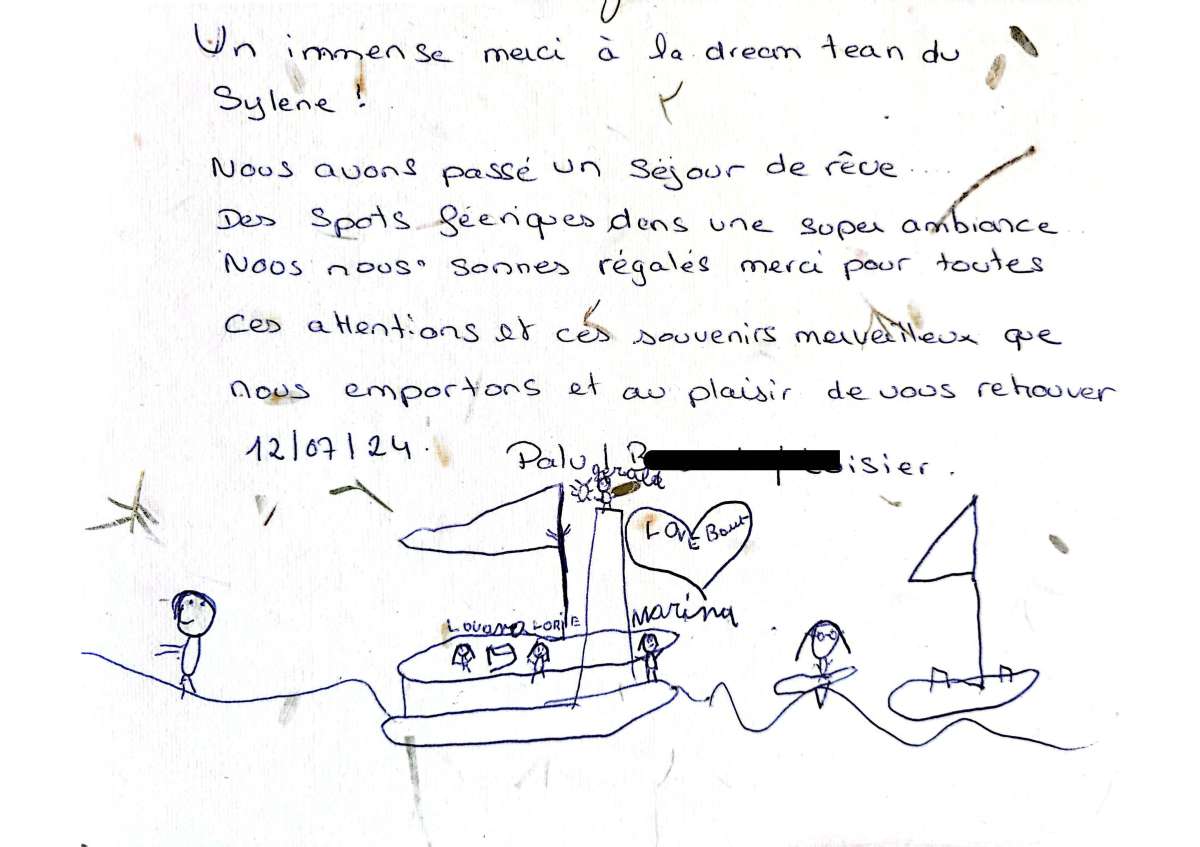 Un immense merci à la dream tean du
Sylene !
Nous avons passé un séjour de rêve ....
Des spots féeriques dans une super ambiance
Nous nous sonnes régalés merci pour toutes
ces attentions et ces souvenirs merveilleux que
nous emportons et au plaisir de vous retrouver
12/07/24.
isier.
gérald
LOVE Bout
Marina
Louana LORIE